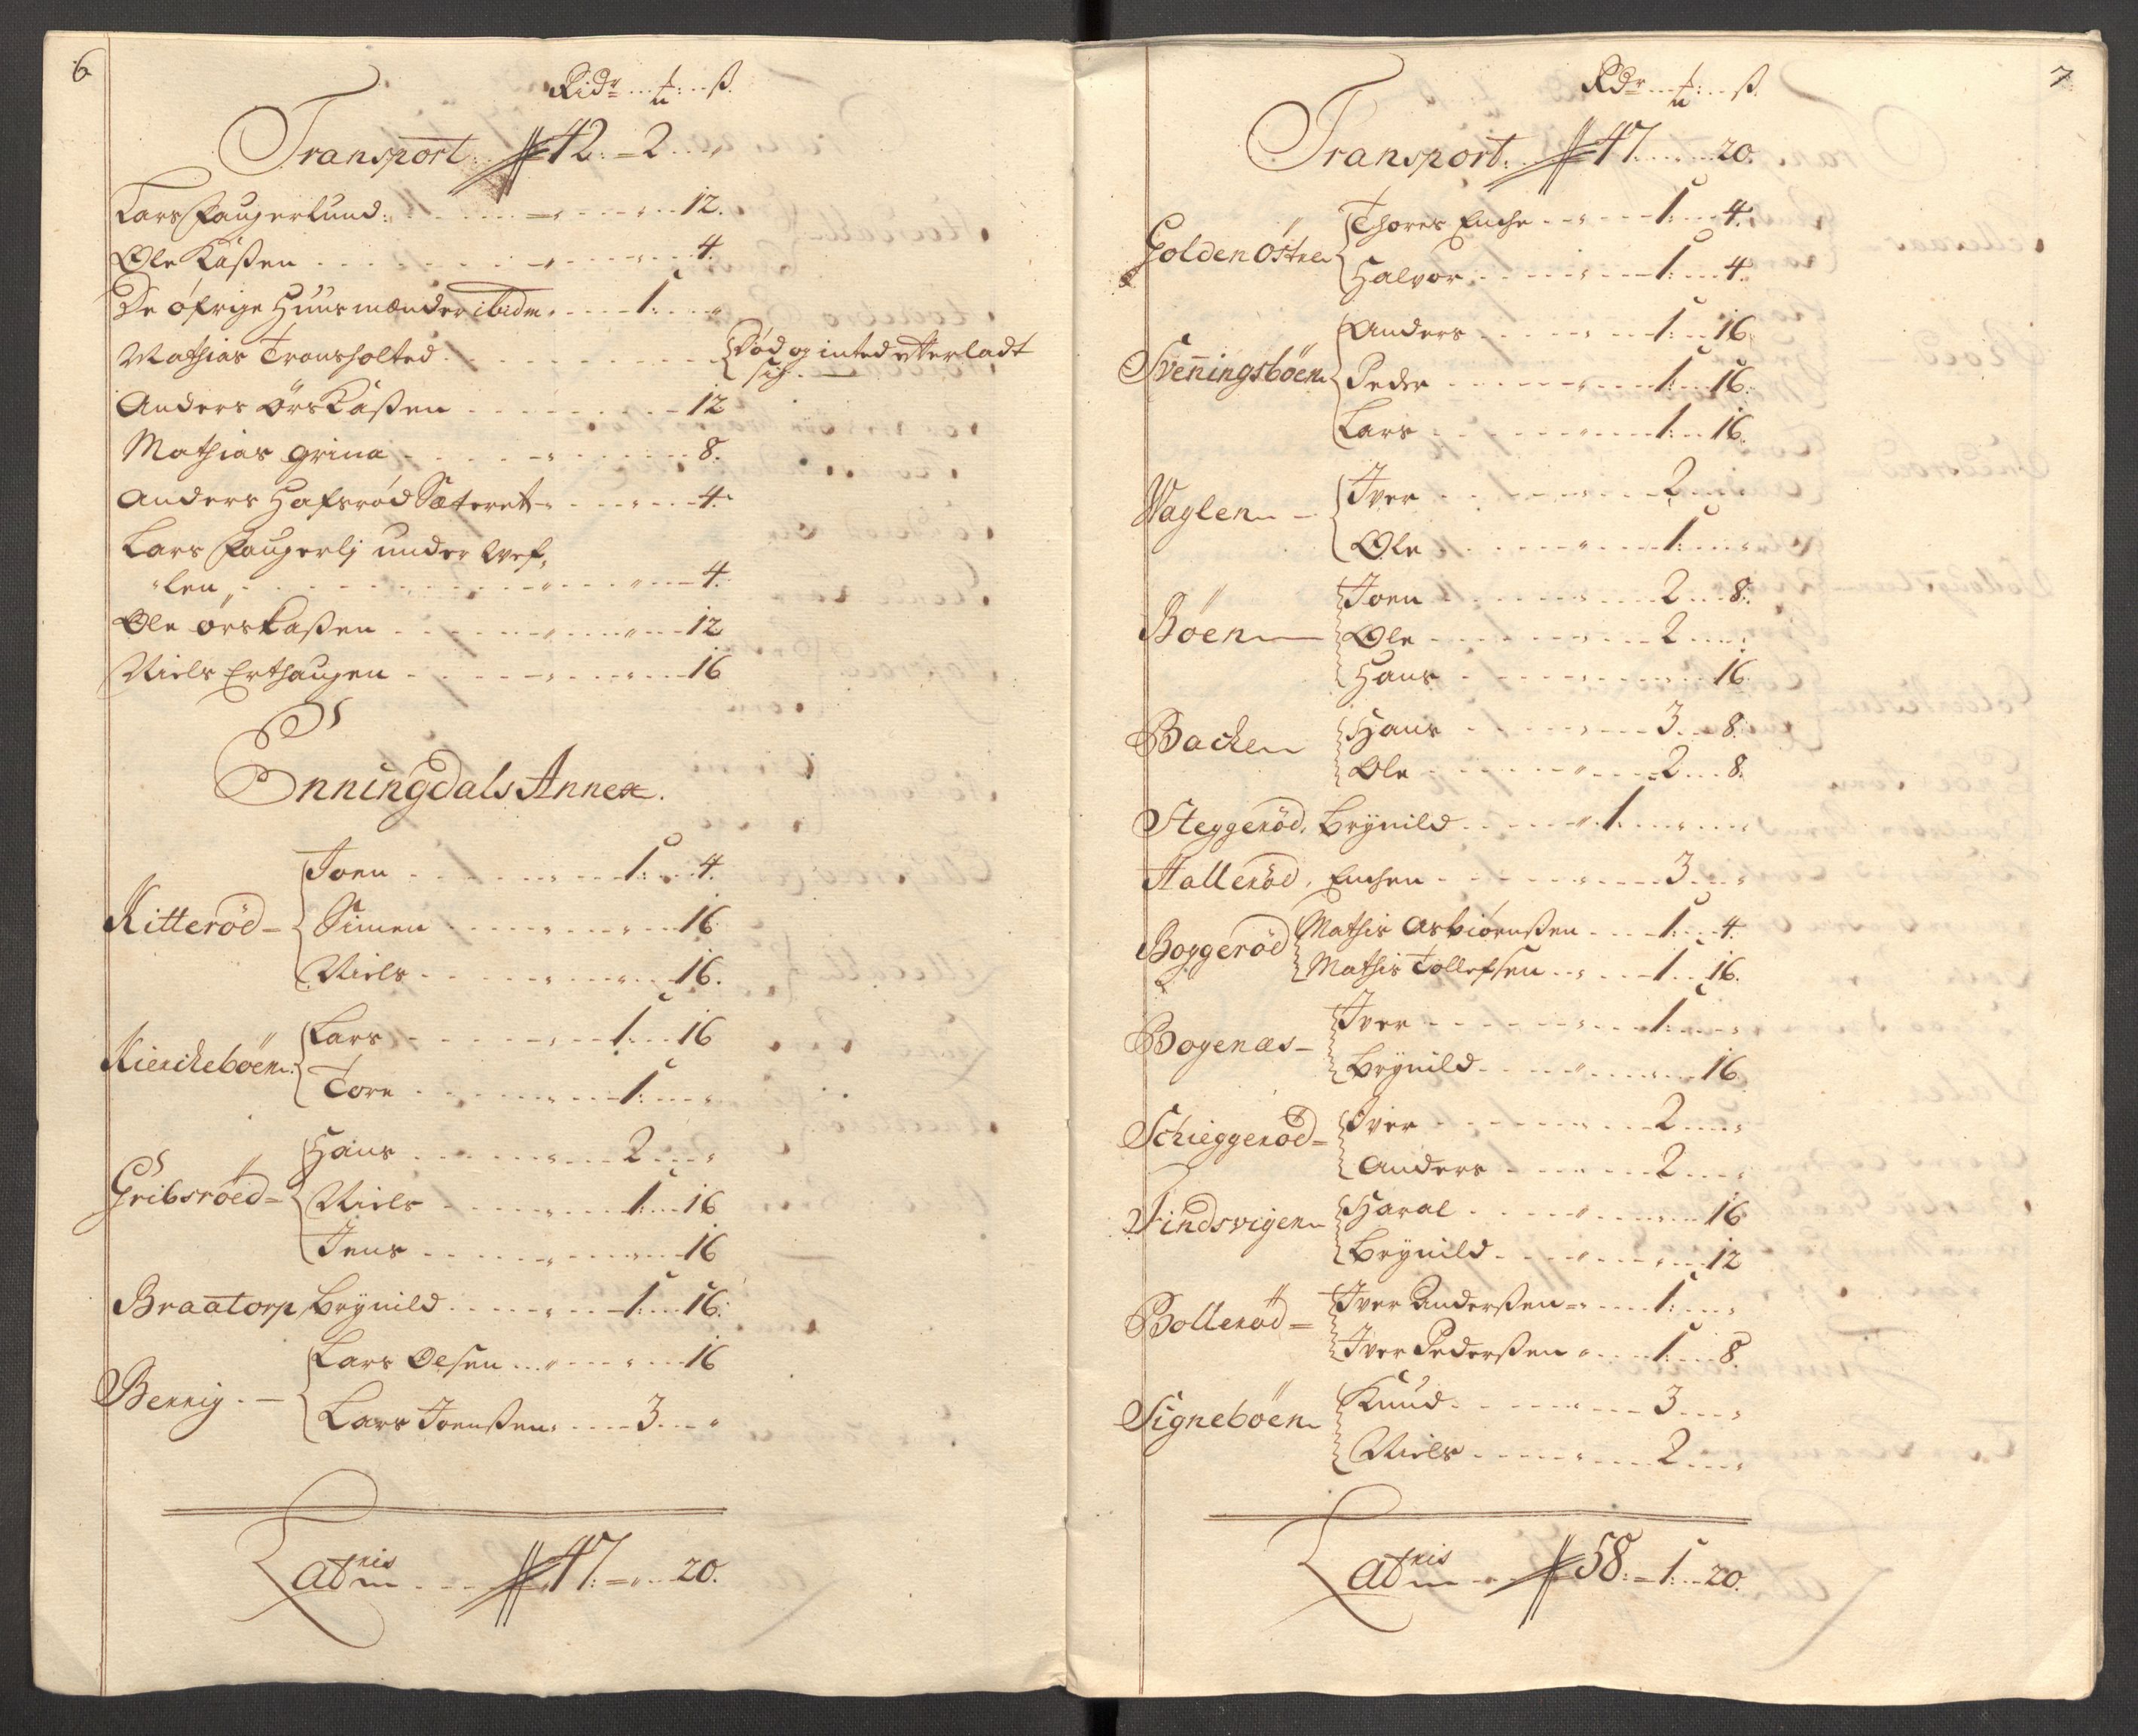 6
Ridr...℔:..ß.
Transport: 42:=2...„
Lars Haugerlund: . . . . 12.
Ole Kaaßen . . . . 4.
De öfrige Huusmænder ibidm . . . 1: . . „
Mathias Tronsholted . . . . {Död og inted efterladt
sig. —
Anders Örskaaßen . . . . 12
Mathias grina . . . . 8.
Anders Hafsröd Sæteret . . . . 4.
Lars Haugerlj under Wef,
„len, . . . . 4.
Ole örskaßen . . . . 12
Niels Erthaugen . . . . 16
Enningdals Annex.
Kitteröd – { Joen . . . . 1: . . 4.
Simen . . . . 16
Niels . . . . 16.
Kierckeböen: { Lars . . . . 1: . . 16
Tore . . . . 1: . . „
Gribsröed = { Hans . . . . 2 . . „
Niels . . . . 1: . . 16
Jens . . . . 16
Braatorp, Brynild . . . . 1: . . 16:
Berrig. – { Lars Olsen . . . . 16
Lars Joenßen . . . . 3 . . „
Latris . . . 47: = „ . . 20.
7
Rdr...℔:..ß.
Transport: . . 47. . . . . 20.
Golden Östre { Thores Enche . . . . 1: . . 4.
Halvor . . . . 1: . . 4.
Sveningsböen { Anders . . . . 1: . . 16
Peder . . . . 1: . . 16.
Lars . . . . 1: . . 16.
Waglen – { Iver . . . . 2 . . „
Ole . . . . 1: . . „
Böen — { Joen . . . . 2 . . 8.
Ole . . . . 2 . . „
Hans . . . . 16
Backen { Hans . . . . 3 . . 8.
Ole . . . . 2 . . 8.
Steggeröd, Brynild . . . . 1: . . „
Halleröd, Enchen . . . . 3 . . „
Boggeröd { Mathis Asbiörnßen . . . 1: . . 4.
Mathis Tollefsen . . . 1 . . 16.
Bogenæs – { Iver . . . . 1: . . „
Brynild . . . . 16
Schieggeröd = { Iver . . . . 2 . . „
Anders . . . . 2 . . „
Findsvigen { Haral . . . . 16
Brynild . . . . 12
Bolleröd = { Iver Anderßen . . . 1: . . „
Iver Pederßen . . . 1: . . 8.
Signeböen { Knud . . . . 3 . . „
Niels . . . . 2 . . „
Latris . . . 58: = 1: . . 20.